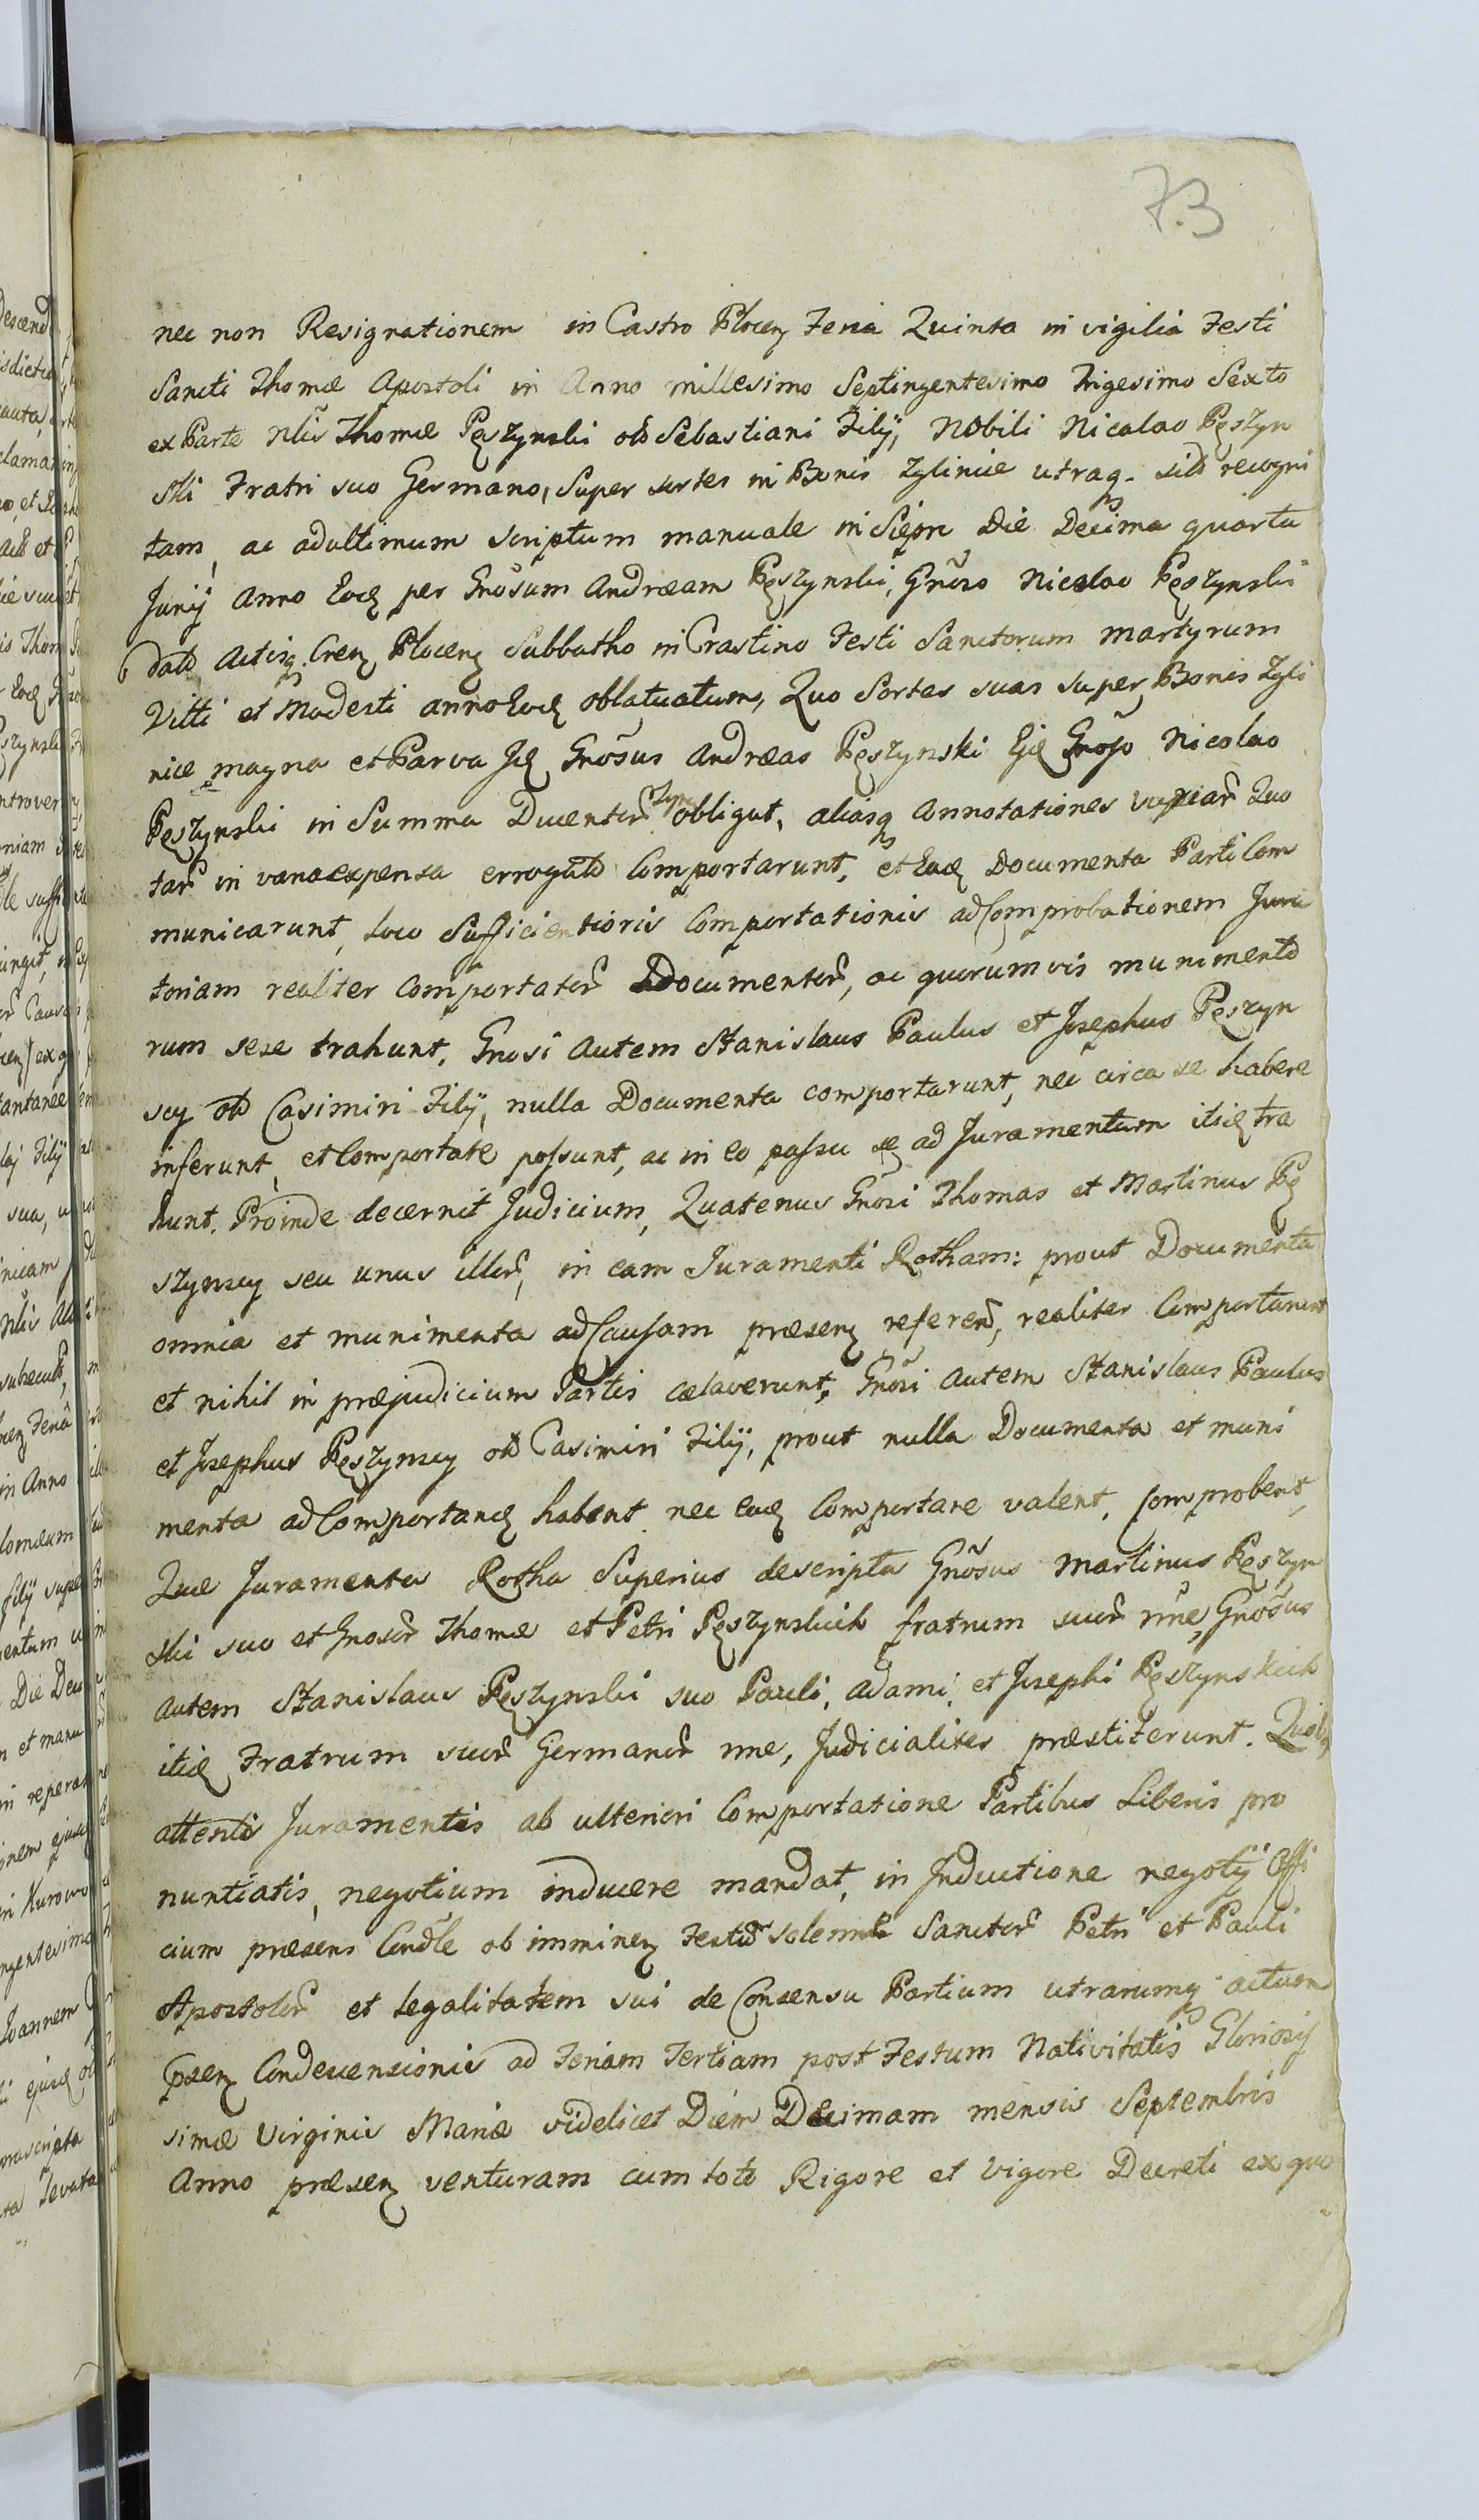 73
nec non Resignationem in Castro Plocen Feria Quinta in vigilia Festi
Sancti Thomæ Apostoli in Anno millesimo Septingentesimo Trigesimo Sexto
ex Parte Nlis Thomæ Pęszynski olim Sebastiani Filij, Nobili Nicolao Pęszyn
ski Fratri suo Germano, Super sortes in Bonis Zglinice utraq. sibi recogni
tam, ac ad ultimum scriptum manuale in Sieprc Die Decima quarta
Junij Anno Eod per Gnosum Andræam Pęszynski, Gnoso Nicolao Pęszynski
dato Actisq. Cren Plocen Sabbatho in Crastino Festi Sanctorum Martyrum
Vitti et Modesti anno Eod oblatuatum, Quo Sortes suas super Bonis Zgli
nice magna et Parva Id Gnosus Andræas Pęszynski Eid Gnoso Nicolao
Pęszynski in Summa Ducentor obligat, aliasq annotationes variar Quo
tar in vana expensa errogat Comportarunt, et Ead Documenta Parti Com
municarunt, loco Sufficientioris Comportationis ad Comprobationem Jura
toriam realiter Comportator Documentor, ac quorumvis munimento
rum sese trahunt, Gnosi Autem Stanislaus Paulus et Josephus Pęszyn
scy olim Casimiri Filij, nulla Documenta comportarunt, nec circa se habere
inferunt, et Comportare possunt, ac in eo passu se ad Juramentum itid tra
hunt. Proinde decernit Judicium, Quatenus Gnosi Thomas et Martinus Pę
szynscy seu unus illor, in eam Juramenti Rotham: prout Documenta
omnia et munimenta ad Causam præsen referen, realiter Comportarunt
et nihil in præjudicium Partis cælaverunt, Gnosi autem Stanislaus Paulus
et Josephus Pęszynscy olim Casimiri Filij, prout nulla Documenta et muni
menta ad Comportand habent nec ead Comportare valent, Comprobent,
Quæ Juramenta Rotha Superius descripta Gnosus Martinus Pęszyn
ski suo et Gnosor Thomæ et Petri Pęszynskich fratrum suor nne, Gnosus
autem Stanislaus Pęszynski suo Pauli, Adami, et Josephi Pęszynskich
itid Fratrum suor Germanor nne, Judicialiter præstiterunt. Quib
attentis Juramentis ab ulteriori Comportatione Partibus Liberis pro
nuntiatis, negotium inducere mandat, in Inductione negotij Offi
cium præsens Condle ob imminen Festor solenne Sanctor Petri et Pauli
Apostolor et legalitatem sui de Consensu Partium utrarumq actum
præsen Condescensionis ad Feriam Tertiam post Festum Nativitatis Gloriosis
simæ Virginis Mariæ videlicet Diem Decimam mensis Septembris
Anno præsen venturam cum toto Rigore et Vigore Decreti ex quo